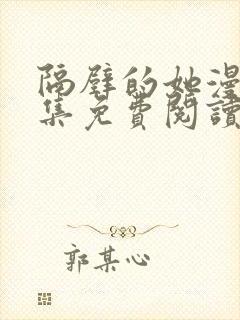 隔壁的她漫
集免費閱讀
郭某心